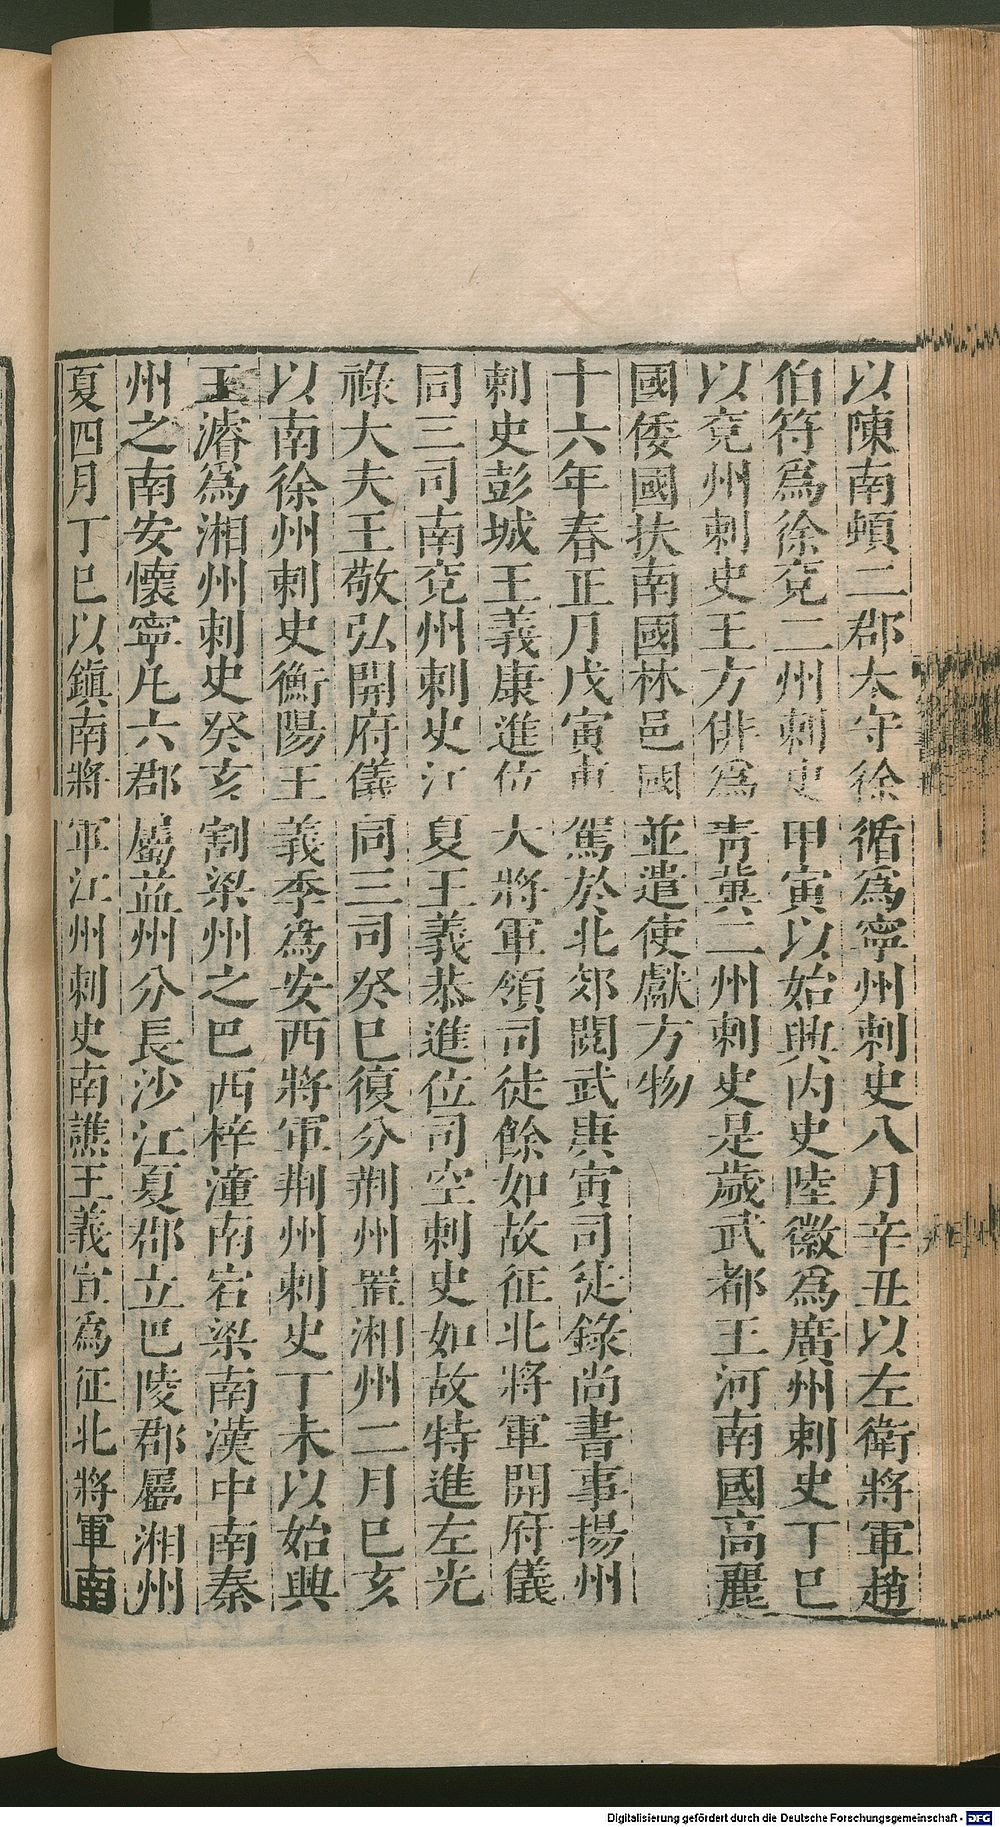 以陳南頓二郡太守徐循爲寧州刺史八月辛丑以左衛將軍趙
伯符爲徐兖二州刺史甲寅以始興内史陸徽爲廣州刺史丁巳
以兖州刺史王方俳爲青冀二州刺史是歲武都王河南國高麗
國倭國扶南國林邑國並遣使獻方物
十六年春正月戊寅車駕於北郊閱武庚寅司徒錄尚書事揚州
刺史彭城王義康進位大將軍領司徒餘如故征北將軍開府儀
同三司南兖州刺史江夏王義恭進位司空刺史如故特進左光
祿大夫王敬弘開府儀同三司癸巳復分荆州置湘州二月巳亥
以南徐州刺史衡陽王義季爲安西將軍荆州刺史丁未以始興
王濬爲湘州刺史癸亥割梁州之巴西梓潼南宕梁南漢中南秦
州之南安懷寧凡六郡屬益州分長沙江夏郡立巴陵郡屬湘州
夏四月丁巳以鎭南將軍江州刺史南譙王義宣爲征北將軍南
Digitalisierung gefördert durch die Deutsche Forschungsgemeinschaft - DFG